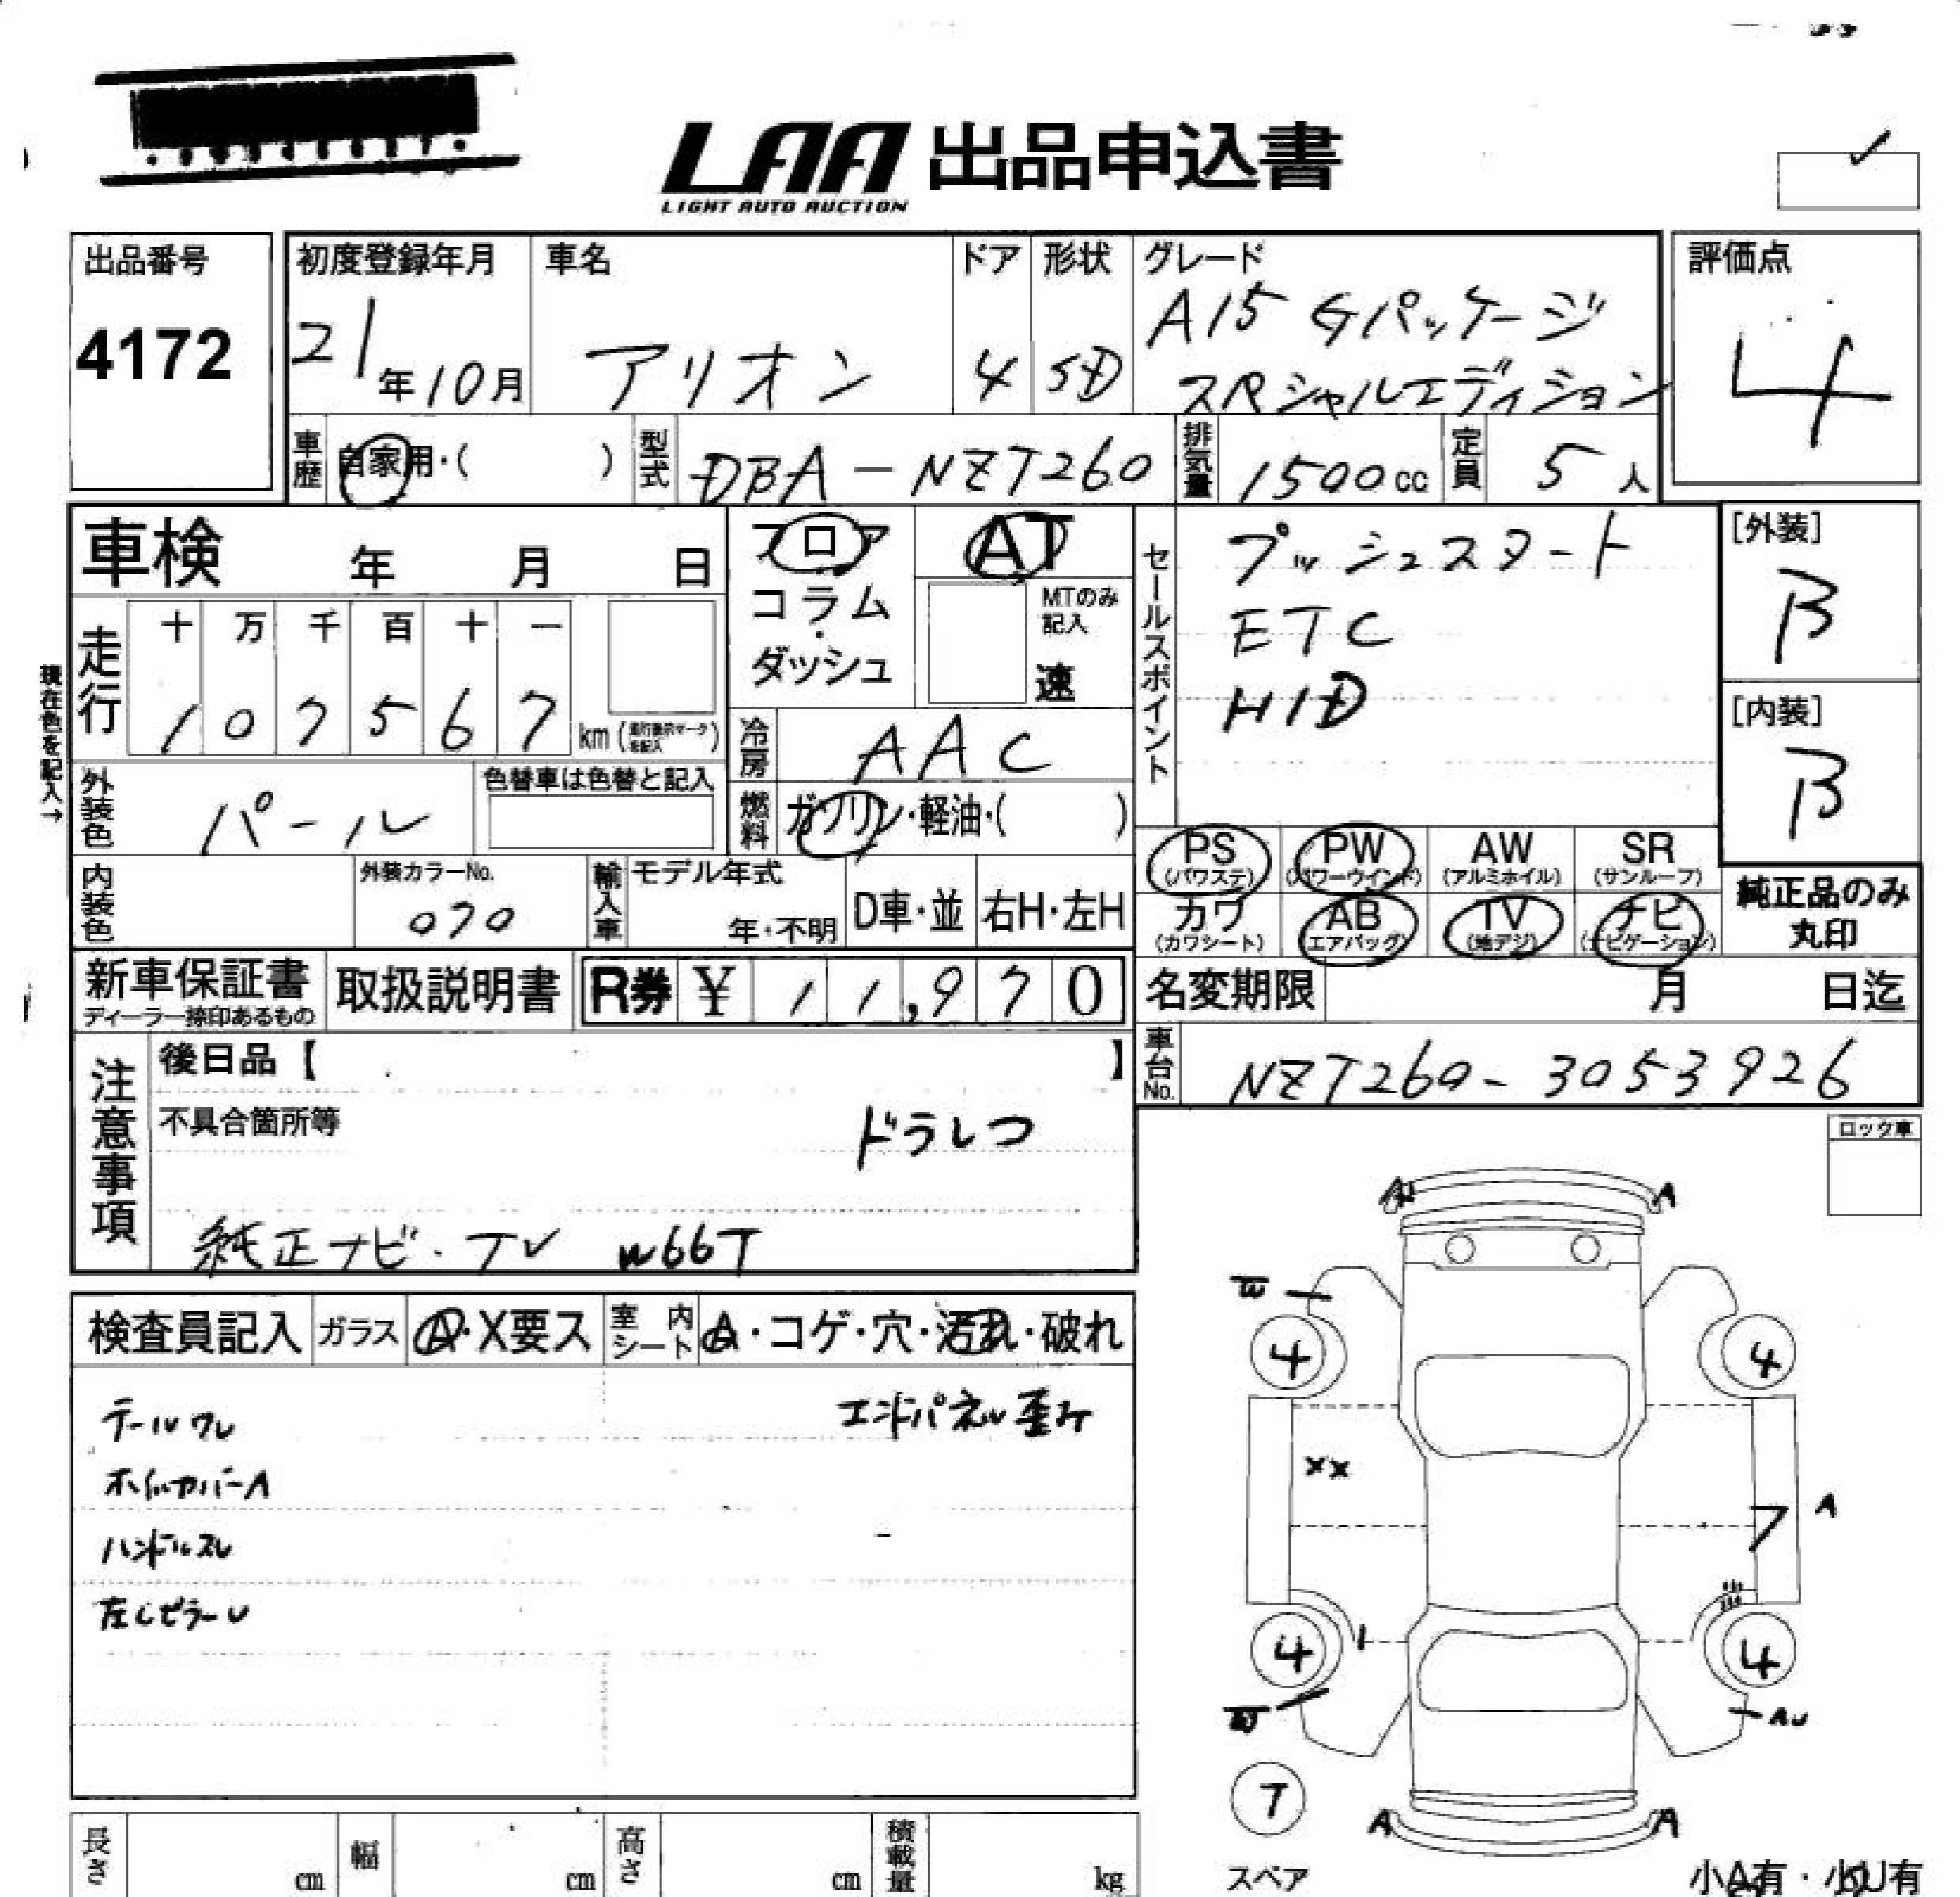 LAA 出品申込書
LIGHT AUTO AUCTION
出品番号
4172
初度登録年月
21年10月
車名
アリオン
ドア
4
形状
SD
グレード
A15 Gパッケージ
スペシャルエディション
評価点
4
車歴
自家用・( )
型式
DBA-NZT260
排気量
1500cc
定員
5人
車検 年 月 日
フロア
コラム
・
ダッシュ
AT
MTのみ
記入
速
セールスポイント
プッシュスタート
ETC
HID
[外装]
B
[内装]
B
現在色を記入→
走行
十 万 千 百 十 一
1 0 7 5 6 7 km
冷房
AAC
外装色
パール
色替車は色替と記入
燃料
ガソリン・軽油・( )
PS
(パワステ)
PW
(パワーウインド)
AW
(アルミホイル)
SR
(サンルーフ)
内装色
外装カラーNo.
070
輸入車
モデル年式
年・不明
D車・並
右H・左H
カワ
(カワシート)
AB
(エアバッグ)
TV
(地デジ)
ナビ
(ナビゲーション)
純正品のみ
丸印
新車保証書
ディーラー捺印あるもの
取扱説明書
R券 ¥ 11,970
名変期限 月 日迄
車台No.
NZT260-3053926
注意事項
後日品【 】
不具合箇所等
ドラレコ
純正ナビ・TV W66T
ロック車
検査員記入
ガラス
A・X要ス
室内
シート
A・コゲ・穴・汚れ・破れ
テールワレ
エンドパネル歪み
ホイルカバーA
ハンドルスレ
左CピラーU
A A
W
4 4
XX
A
7
4 4
AU
7
スペア
A A
小A有・小U有
長さ cm
幅 cm
高さ cm
積載量 kg